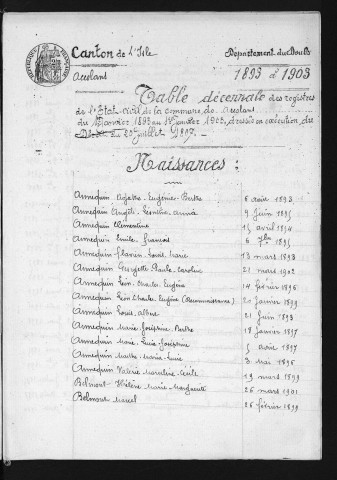 Canton de l'Isle
Département du Doubs
1893 à 1903
Table décennale des registres
de l'Etat civil de la commune de
du 1er janvier 1893 au 1er janvier 1903, dressée en exécution du
Décret du 20 juillet 1807.
Naissances :
Annequin Eugénie Berthe 6 août 1893
Annequin Angèle Léontine Anna 9 juin 1895
Annequin Clémentine 15 avril 1894
Annequin Emile François 6 1895
Annequin Florian Louis Marie 13 mars 1893
Annequin Georgette Paule Caroline 21 mars 1902
Annequin Léon Charles Eugène 14 février 1896
Annequin Léon Charles Eugène (Reconnaissance) 20 janvier 1899
Annequin Louis Albert 21 juin 1893
Annequin Marie Joséphine Berthe 18 janvier 1897
Annequin Marie Joséphine 5 août 1897
Annequin Marthe Marie 3 mai 1896
Annequin Valérie Cécile 19 mars 1899
Belmont Hélène Marie Marguerite 26 mars 1901
Belmont Marcel 26 février 1899